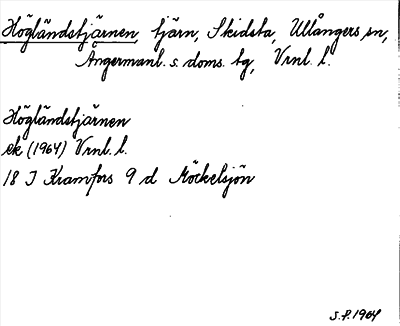 Högländstjärnen, tjärn, Skidsta, Ullångers sn,
Ångermanl. s. doms. tg, Vrnl. l.
Högländstjärnen
ek (1964) Vrnl. l.
18 I Kramfors 9 d Möckelsjön
S.F. 1964